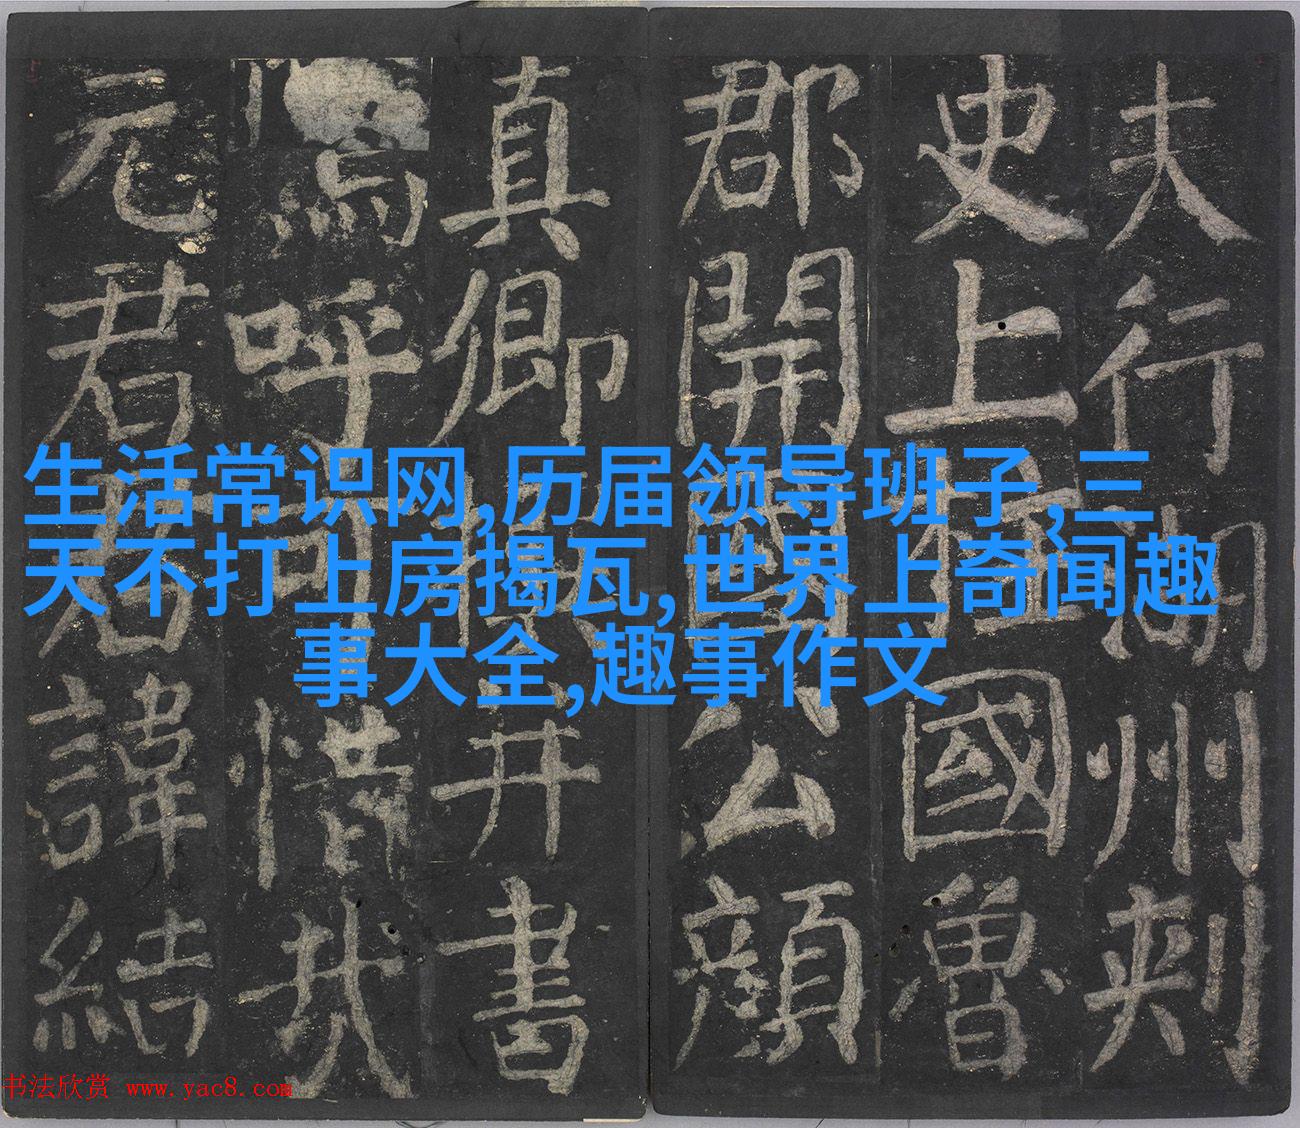 夫行湖州刺
史上柱國魯
郡開國公顏
真卿撰并書
嗚呼可惜哉
元君君諱結
生活常识网,历届领导班子,三
天不打上房揭瓦,世界上奇闻趣
事大全,趣事作文
书法欣赏 www.yac8.com